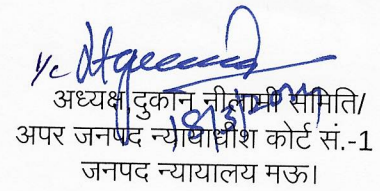 अध्यक्ष दुकान नीलामी समिति/
अपर जनपद न्यायाधीश कोर्ट सं.-1
जनपद न्यायालय मऊ।